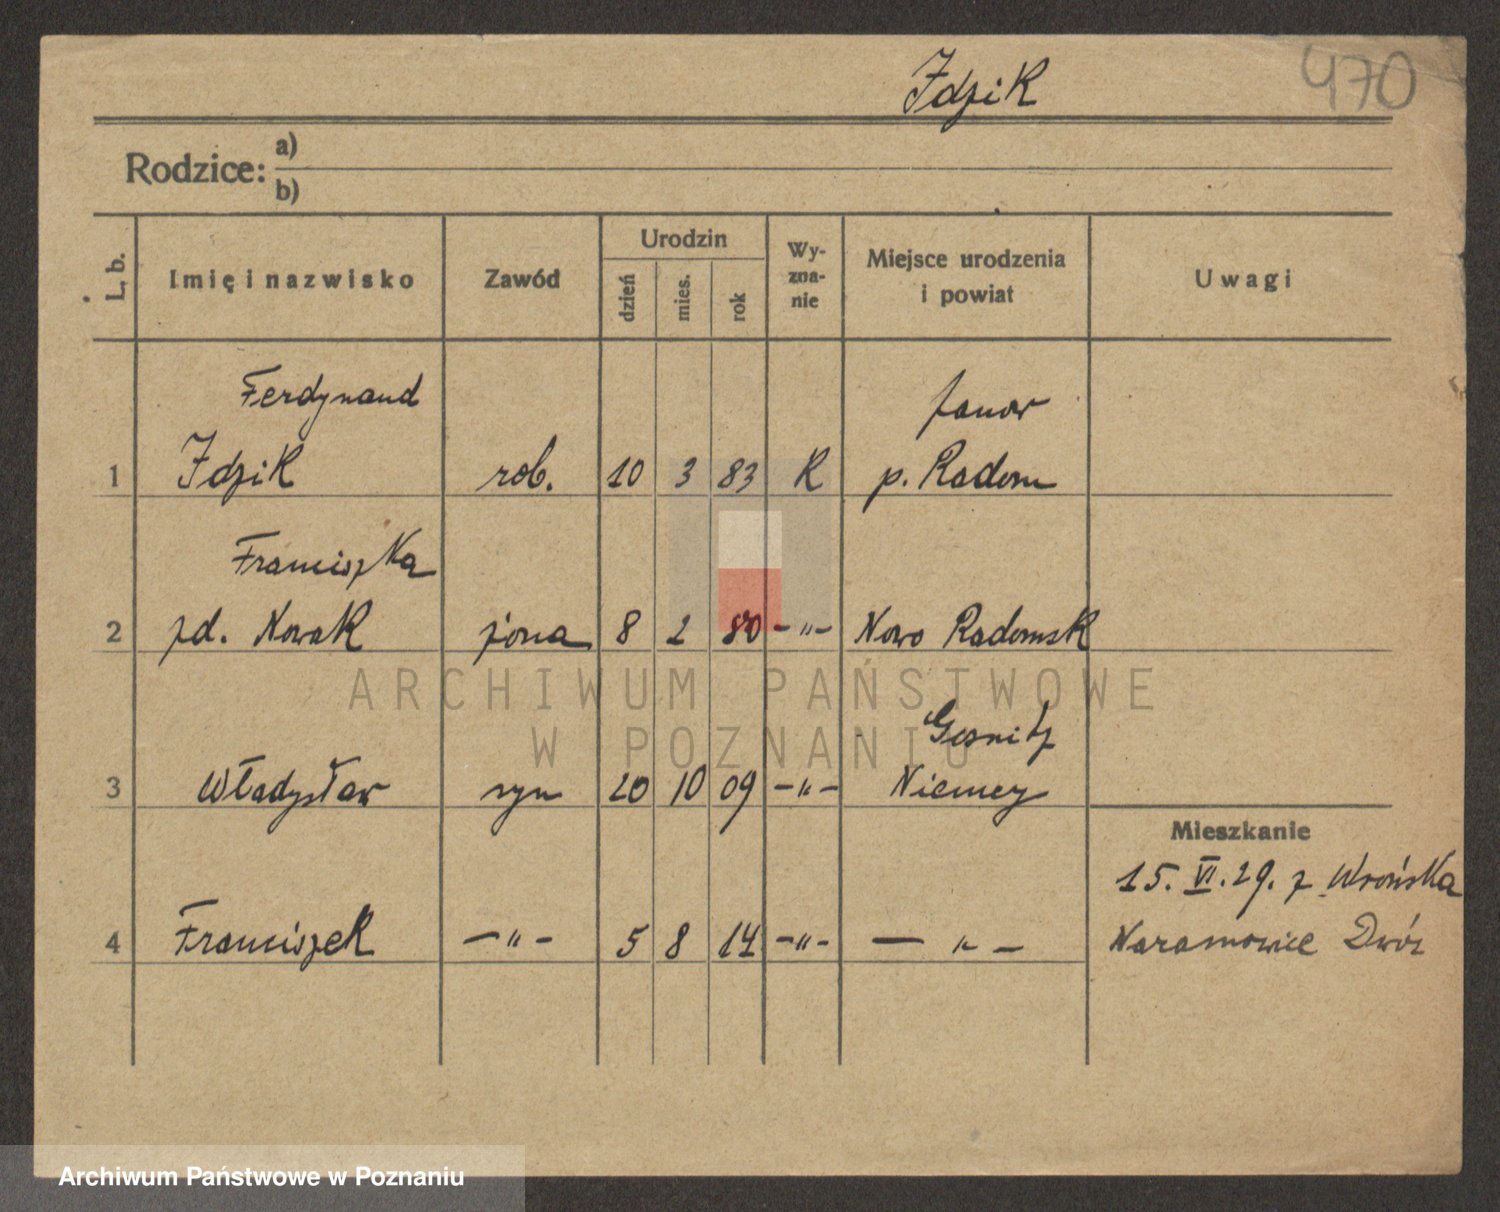 Idzik
470
Rodzice:
a)
b)
L. b.
Imię i nazwisko
Zawód
Urodzin
dzień
mies.
rok
Wy-
zna-
nie
Miejsce urodzenia
i powiat
Uwagi
Ferdynand
Janów
1 Idzik rob. 10 3 83 K p. Radom
Franciszka
2 zd. Nowak żona 8 2 80 –"– Nowo Radomsk
Gosnitz
3 Władysław syn 20 10 09 –"– Niemcy
Mieszkanie
15. VI. 29. z Wrońska
4 Franciszek –"– 5 8 14 –"– –"–
Naramowice Dwór
ARCHIWUM PAŃSTWOWE
W POZNANIU
Archiwum Państwowe w Poznaniu